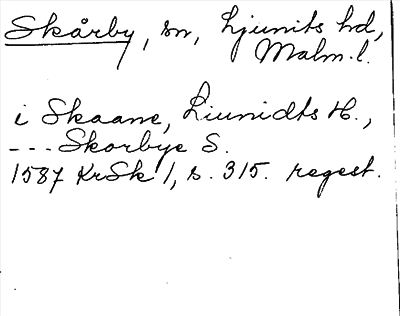 Skårby, sn, Ljunits hd,
Malm. l.
i Skaane, Liunidts H.,
--- Skorbye S.
1587 KrSk 1, s. 315. regest.